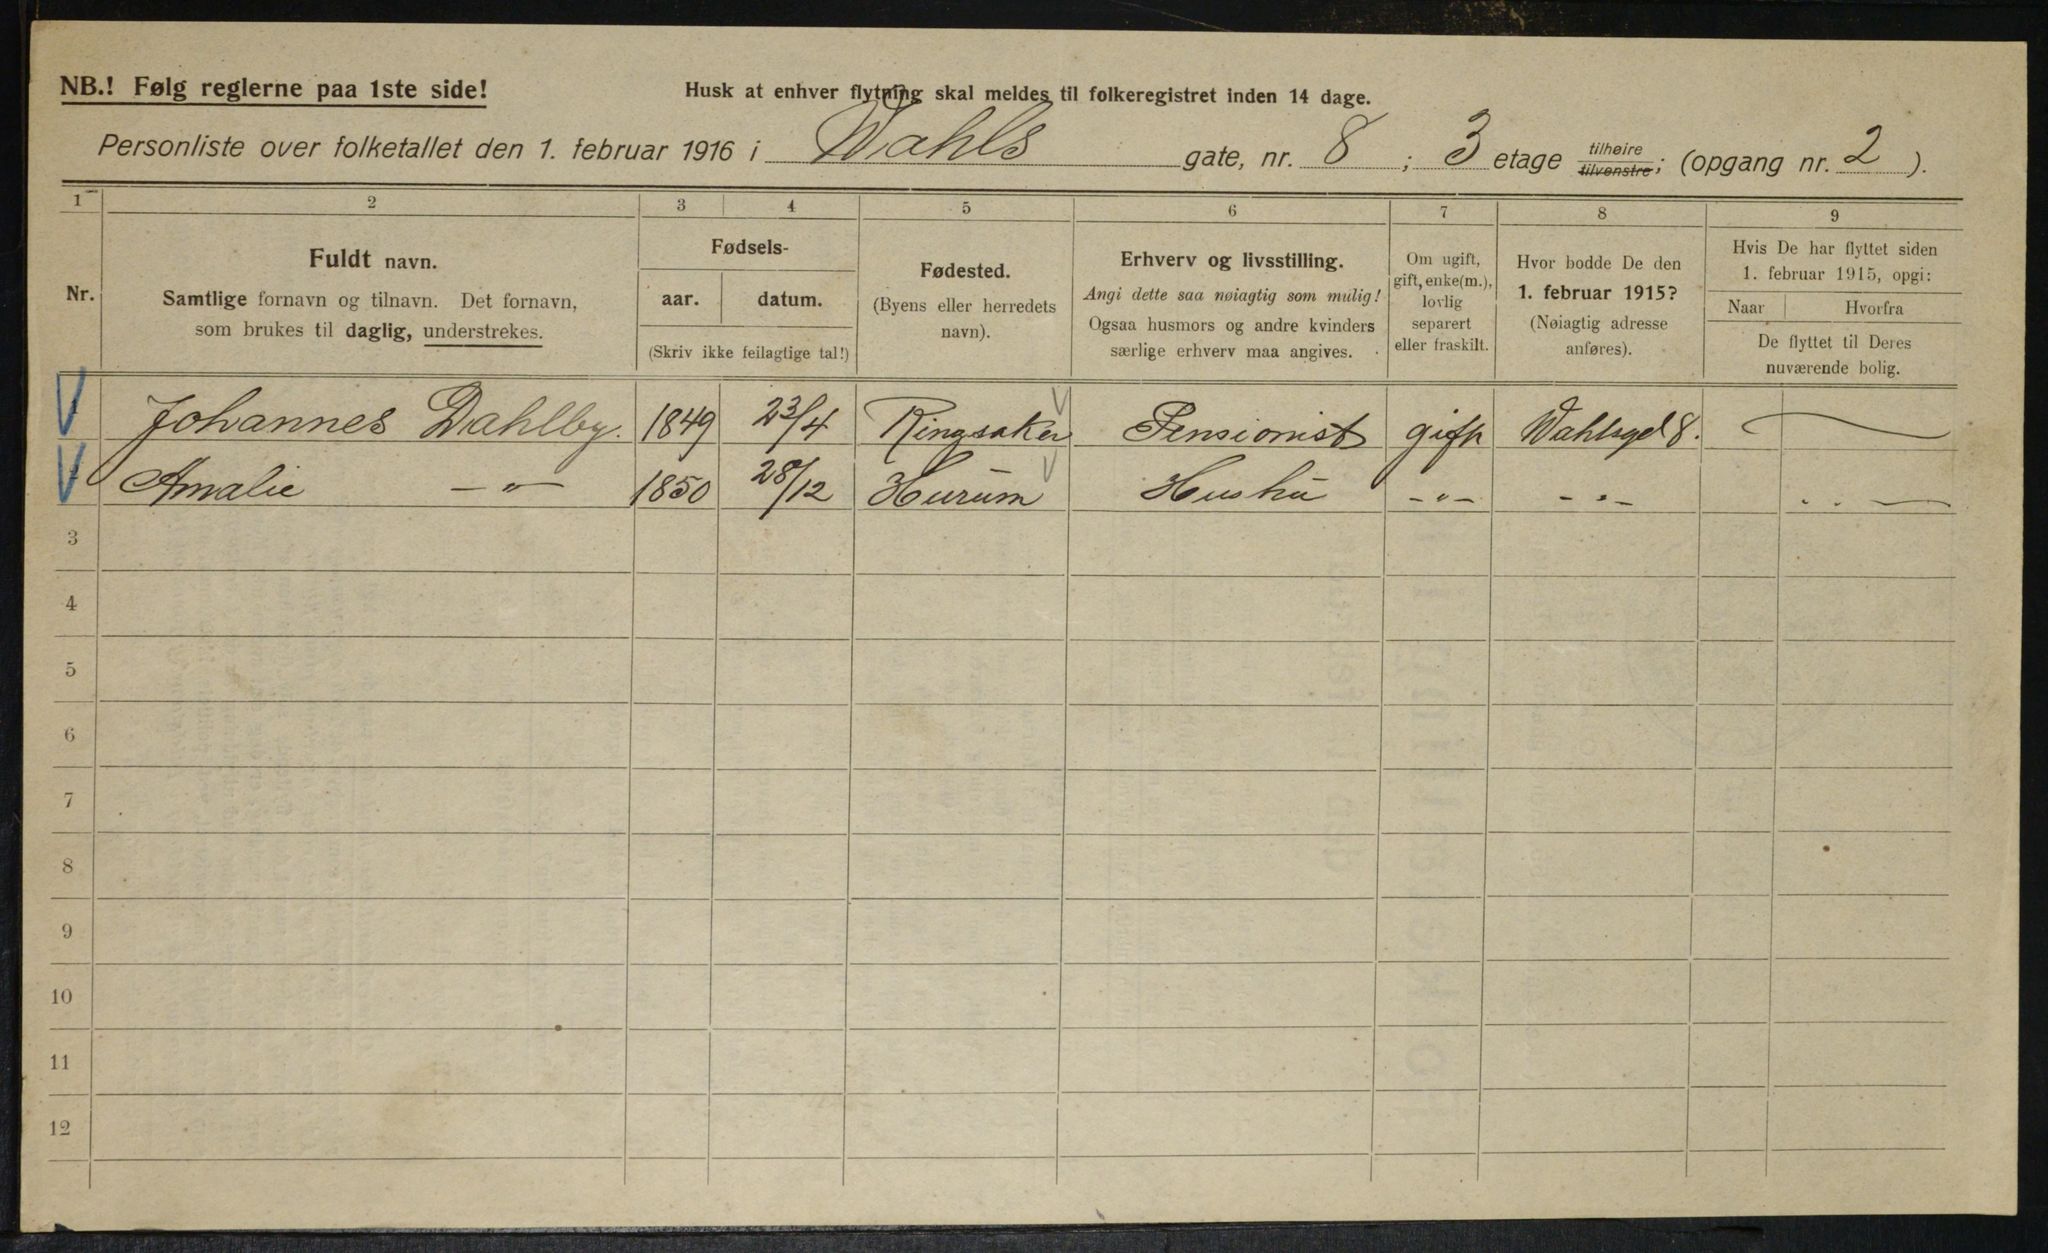 NB.! Følg reglerne paa 1ste side!
Husk at enhver flytning skal meldes til folkeregistret inden 14 dage.
Personliste over folketallet den 1. februar 1916 i Wahls gate, nr. 8 ; 3 etage tilhøire tilvenstre; (opgang nr. 2 ).
1 2 3 4 5 6 7 8 9
Nr.
Fuldt navn.
Samtlige fornavn og tilnavn. Det fornavn,
som brukes til daglig, understrekes.
Fødsels-
aar. datum.
(Skriv ikke feilagtige tal!)
Fødested.
(Byens eller herredets
navn).
Erhverv og livsstilling.
Angi dette saa nøiagtig som mulig!
Ogsaa husmors og andre kvinders
særlige erhverv maa angives.
Om ugift,
gift, enke(m.),
lovlig
separert
eller fraskilt.
Hvor bodde De den
1. februar 1915?
(Nøiagtig adresse
anføres).
Hvis De har flyttet siden
1. februar 1915, opgi:
Naar Hvorfra
De flyttet til Deres
nuværende bolig.
Johannes Dahlby. 1849 23/4 Ringsaker Pensionist gift Wahlsgd 8. —
Amalie -„- 1850 28/12 Hurum Hustru -„- -„- . . —
3
4
5
6
7
8
9
10
11
12